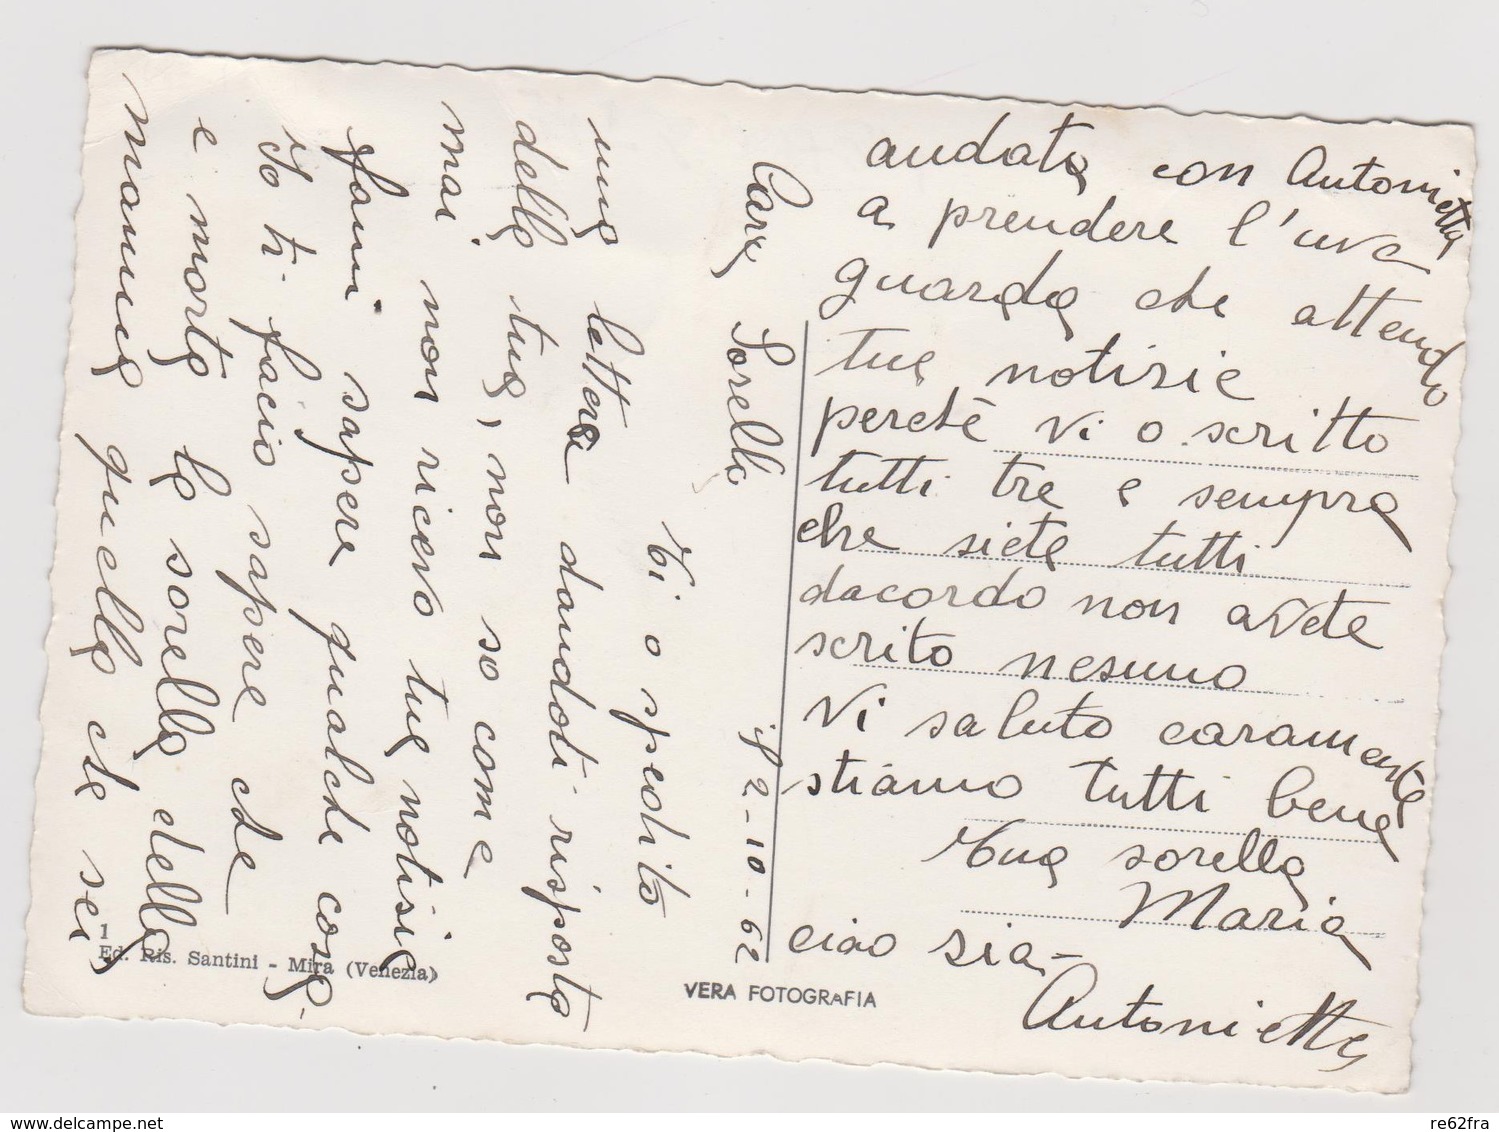 il 2-10-62
Cara Sorella
Ti o spedito
una lettera dandoti risposta
della tua, non so come
mai non ricevo tue notisie
fami sapere qualche cosa.
Io ti facio sapere che
e morta la sorella della
mamma quella che sei
andata con Antonietta
a prendere l'uva
guarda che attendo
tue notisie
perchè vi o scritto
tutti tre e sempra
che siete tutti
dacordo non avete
scrito nesuno
Vi saluto caramente
stiamo tutti bene
Tua sorella
Maria
ciao zia-
Antonietta
1
Ed. Ris. Santini - Mira (Venezia)
VERA FOTOGRAFIA
re62fra